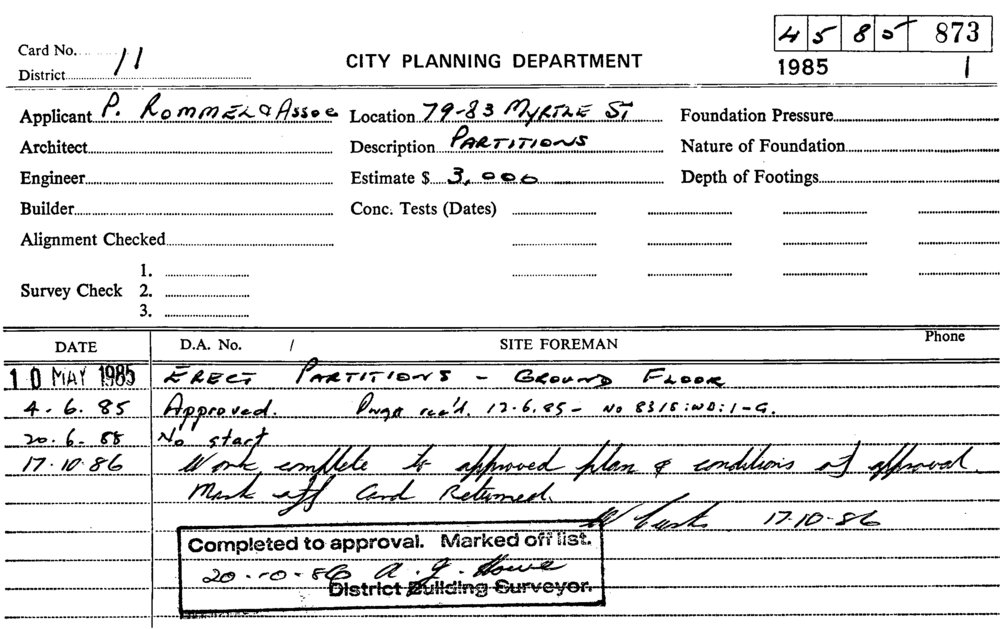 4 5 8 5 873
Card No. 11
CITY PLANNING DEPARTMENT
1985 1
District
Applicant P. ROMMEL & ASSOC Location 79-83 MYRTLE ST Foundation Pressure
Architect Description PARTITIONS Nature of Foundation
Engineer Estimate $ 3,000 Depth of Footings
Builder Conc. Tests (Dates)
Alignment Checked
1.
Survey Check 2.
3.
DATE D.A. No. / SITE FOREMAN Phone
10 MAY 1985 ERECT PARTITIONS - GROUND FLOOR
4.6.85 Approved. rec'd. 12.6.85 - No 8315:WD:1-G.
20.6. No start
17.10.86 Work complete to approved plan & conditions of approval.
Mark off Card Returned.
17-10-86
Completed to approval. Marked off list.
20-10-86 A. J. Howe
District Building Surveyor.